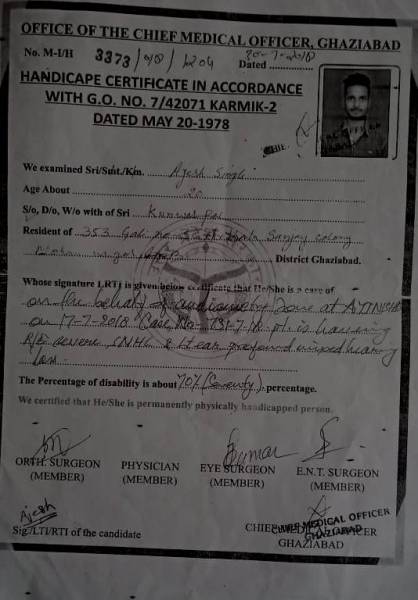 OFFICE OF THE CHIEF MEDICAL OFFICER, GHAZIABAD
No. M-I/H 3373 Dated 20-7-2018
HANDICAPE CERTIFICATE IN ACCORDANCE
WITH G.O. NO. 7/42071 KARMIK-2
DATED MAY 20-1978
We examined Sri/Smt./Km. Ajesh Singh
Age About 20
S/o, D/o, W/o with of Sri
Resident of 353 Sanjay colony
District Ghaziabad.
Whose signature LRTI is given below certificate that He/She is a care of.
on the behalf of audiometry done at
on 17-7-2018 Case No- 731-7-18 pt. is having
severe SNHL & profound mixed hearing
loss
The Percentage of disability is about 70% (Seventy) percentage.
We certified that He/She is permanently physically handicapped person.
ORTH. SURGEON PHYSICIAN EYE SURGEON E.N.T. SURGEON
(MEMBER) (MEMBER) (MEMBER) (MEMBER)
Ajesh
Sig./LTI/RTI of the candidate
CHIEF MEDICAL OFFICER
GHAZIABAD